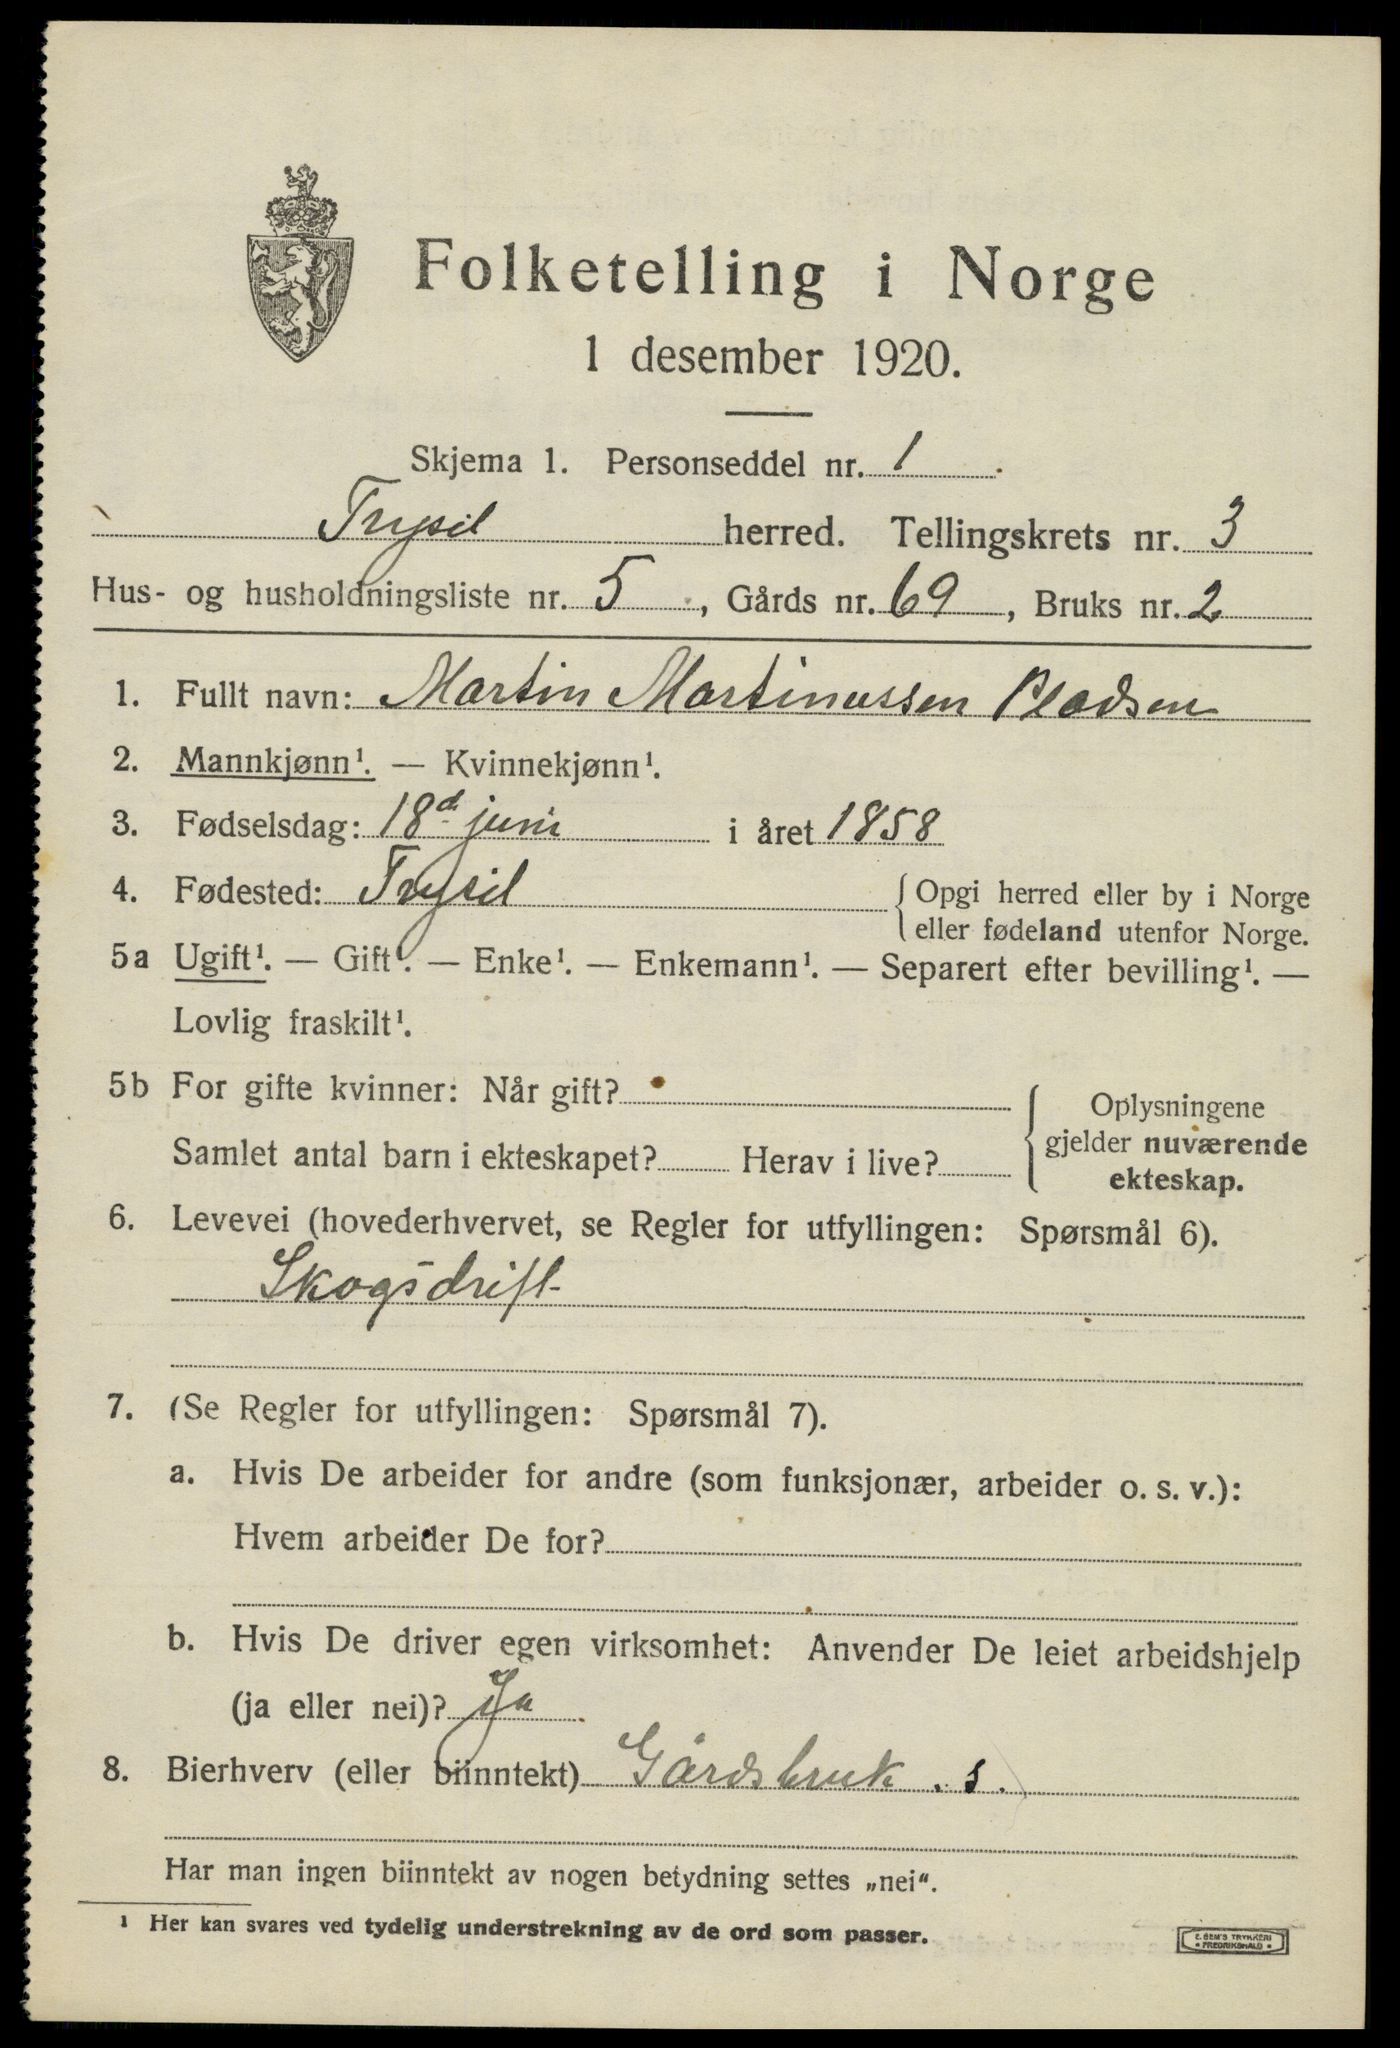 Folketelling i Norge
1 desember 1920.
Skjema 1. Personseddel nr. 1.
Trysil herred. Tellingskrets nr. 3
Hus- og husholdningsliste nr. 5, Gårds nr. 69, Bruks nr. 2
1. Fullt navn: Martin Martinussen Pladsen
2. Mannkjønn¹. — Kvinnekjønn¹.
3. Fødselsdag: 18d juni i året 1858
4. Fødested: Trysil { Opgi herred eller by i Norge
eller fødeland utenfor Norge.
5a Ugift¹. — Gift¹. — Enke¹. — Enkemann¹. — Separert efter bevilling¹. —
Lovlig fraskilt¹.
5b For gifte kvinner: Når gift?
Samlet antal barn i ekteskapet? Herav i live?
{ Oplysningene
gjelder nuværende
ekteskap.
6. Levevei (hovederhvervet, se Regler for utfyllingen: Spørsmål 6).
Skogsdrift
7. (Se Regler for utfyllingen: Spørsmål 7).
a. Hvis De arbeider for andre (som funksjonær, arbeider o. s. v.):
Hvem arbeider De for?
b. Hvis De driver egen virksomhet: Anvender De leiet arbeidshjelp
(ja eller nei)? Ja
8. Bierhverv (eller biinntekt) Gårdsbruk . s.
Har man ingen biinntekt av nogen betydning settes „nei“.
¹ Her kan svares ved tydelig understrekning av de ord som passer.
E. SEM'S TRYKKERI
• FREDRIKSHALD •